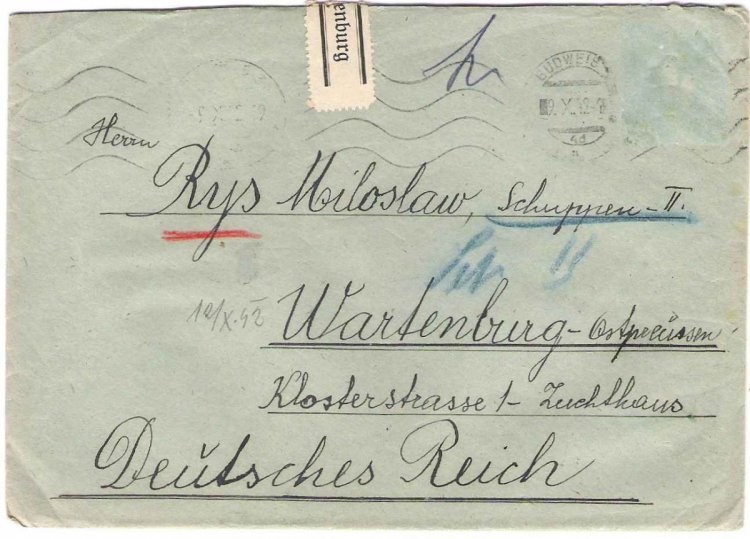 enburg
BUDWEIS
Herrn
Rys Miloslaw, Schuppen-II.
12/X.42
Wartenburg-Ostpreüssen
Klosterstrasse 1-Zuchthaus
Deutsches Reich